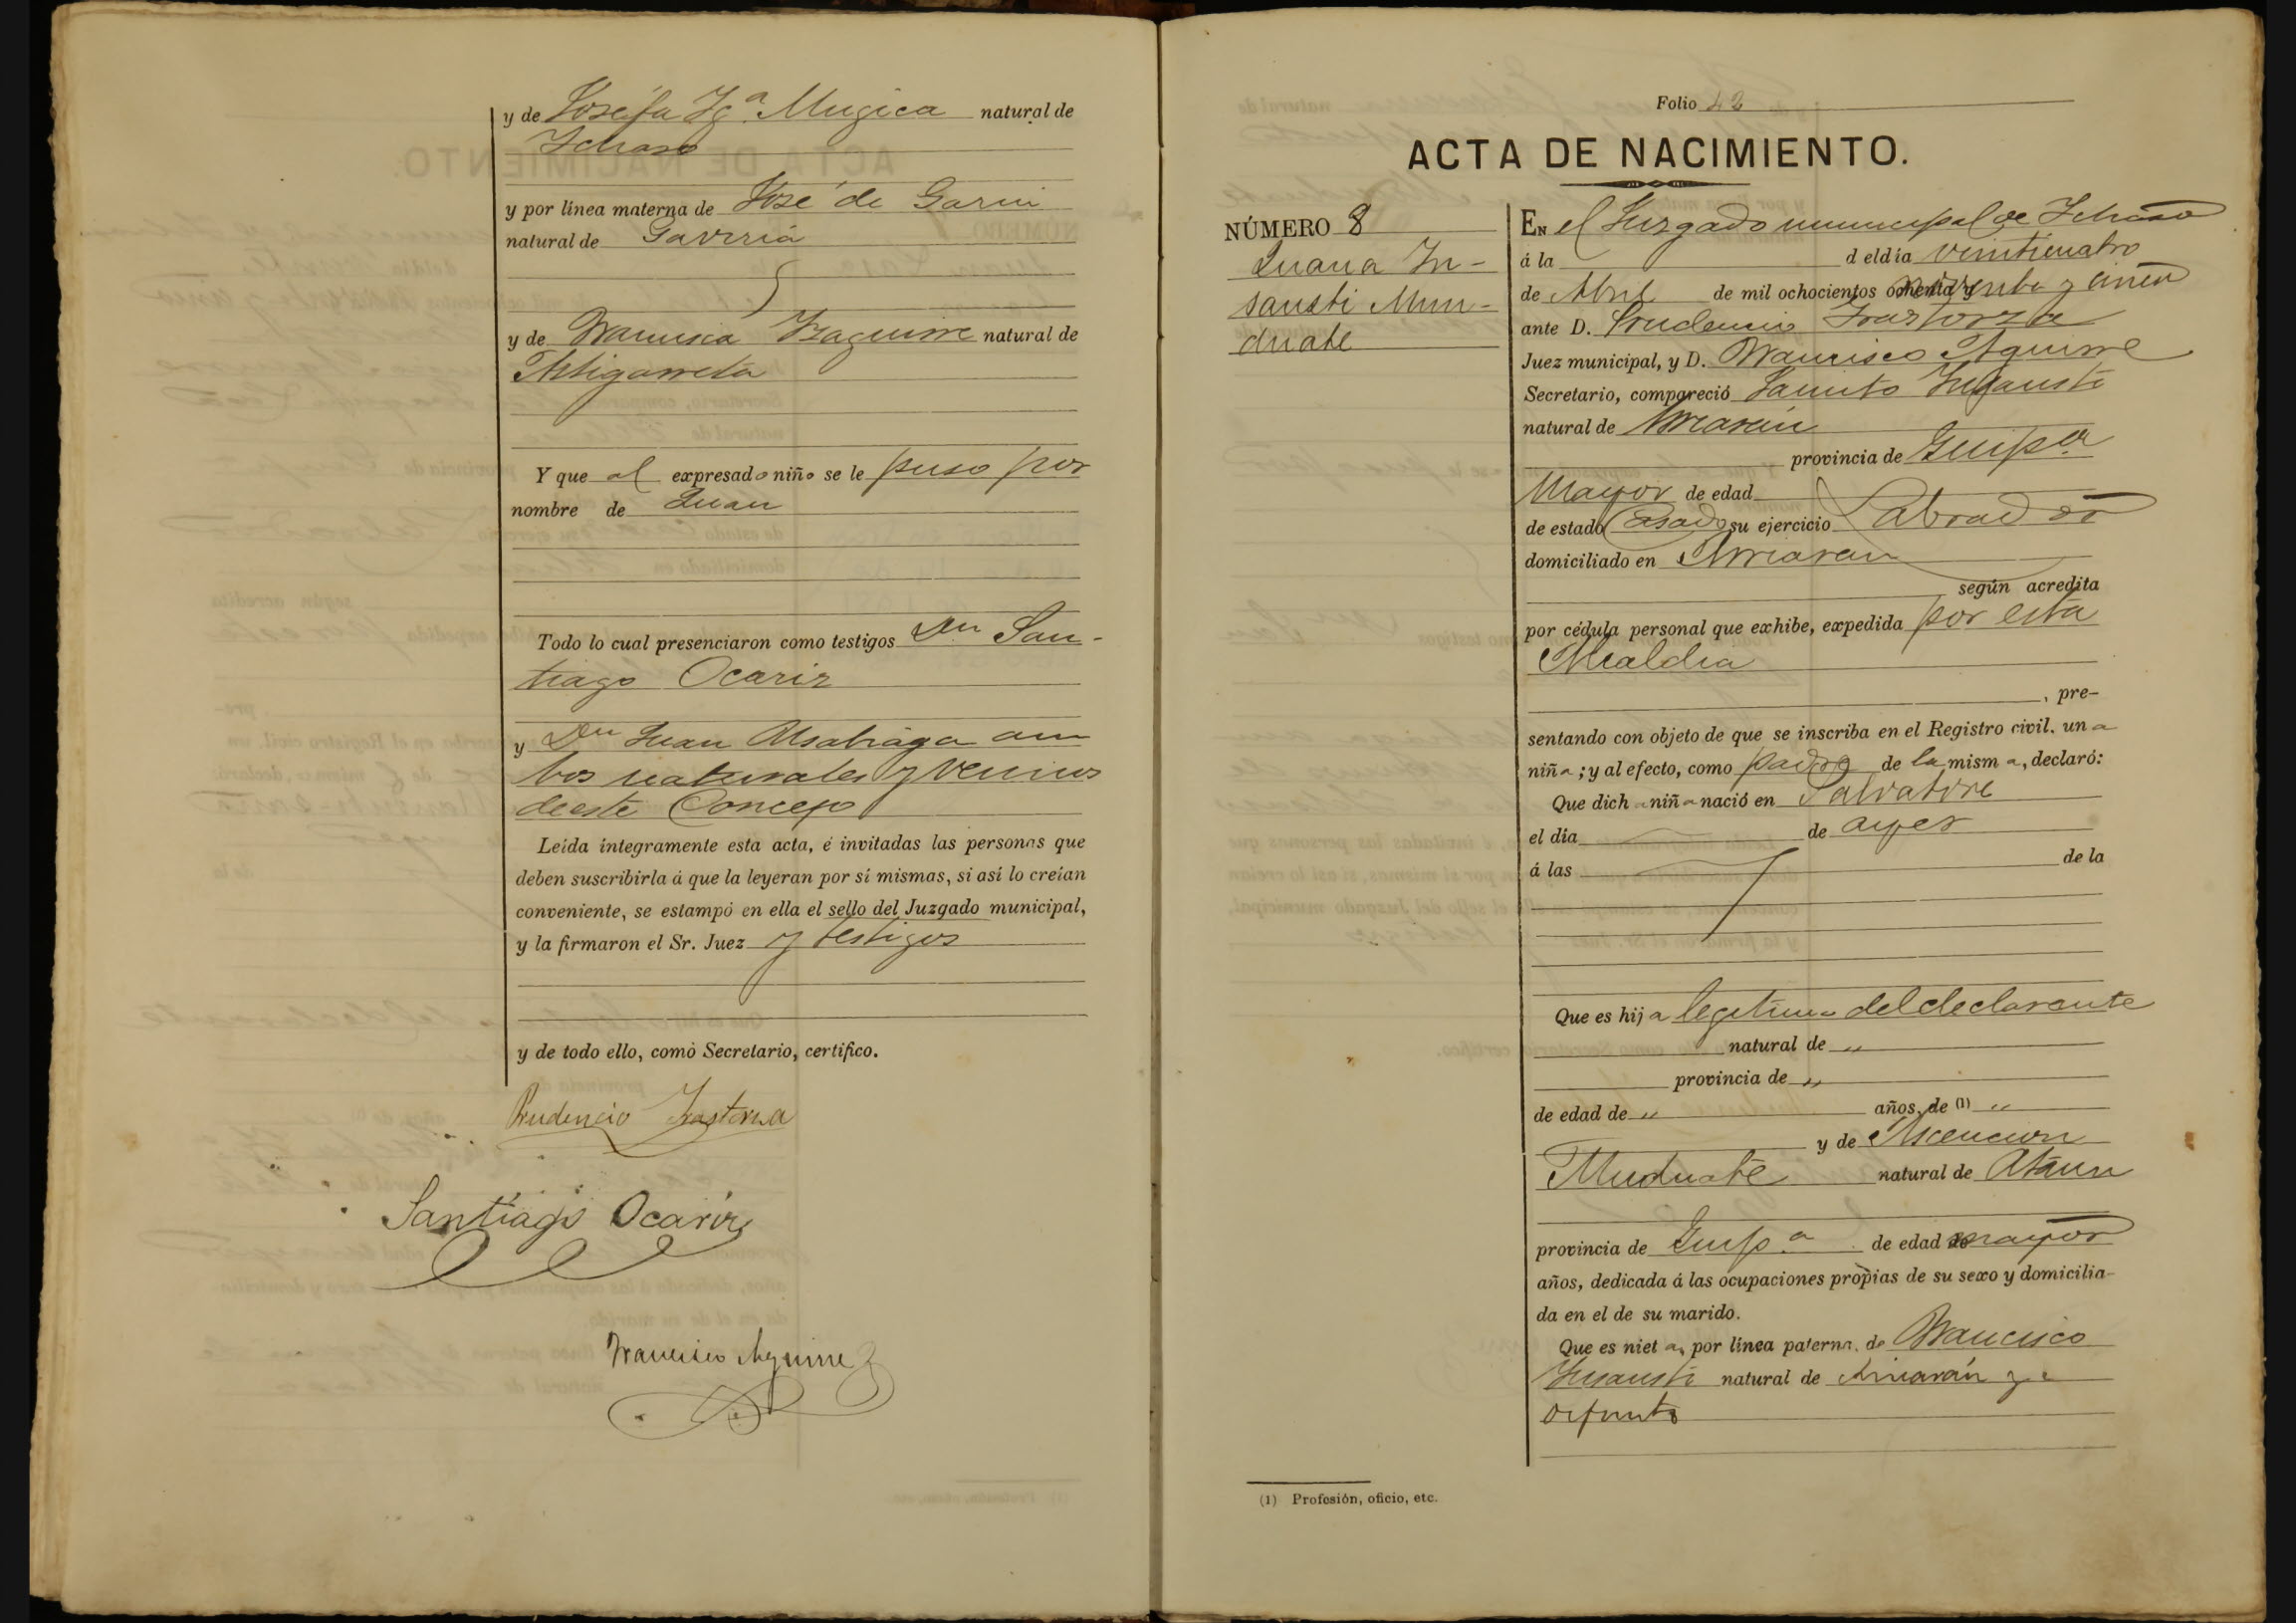 y de Josefa Ig.ª Mugica natural de
Ichaso
y por línea materna de José de Garin
natural de Gaviria
y de Francisca Izaguirre natural de
Astigarreta
Y que al expresado niño se le puso por
nombre de Juan
Todo lo cual presenciaron como testigos Dn San-
tiago Ocariz
y Dn Juan Alsabiaga am
bos naturales y vecinos
de este Concejo
Leída íntegramente esta acta, é invitadas las personas que
deben suscribirla á que la leyeran por sí mismas, si así lo creían
conveniente, se estampó en ella el sello del Juzgado municipal,
y la firmaron el Sr. Juez y testigos
y de todo ello, como Secretario, certifico.
Prudencio Irastorza
Santiago Ocariz
Francisco Aguirre
Folio 42
ACTA DE NACIMIENTO.
NÚMERO 8
Juana In-
sausti Mun-
duate
EN el Juzgado municipal de Ichaso
á la d el día veinticuatro
de Abril de mil ochocientos noventa y cinco
ante D. Prudencio Irastorza
Juez municipal, y D. Francisco Aguirre
Secretario, compareció Jacinto Insausti
natural de Arriarán
provincia de Guip.ª
Mayor de edad
de estado Casado su ejercicio Labrador
domiciliado en Arriaran
según acredita
por cédula personal que exhibe, expedida por esta
Alcaldia
, pre-
sentando con objeto de que se inscriba en el Registro civil, una
niña; y al efecto, como padre de la misma, declaró:
Que dicha niña nació en Salvatore
el día de ayer
á las de la
Que es hija legitima del declarante
natural de "
provincia de "
de edad de " años, de (1) "
y de Ascencion
Munduate natural de Ataun
provincia de Guip.ª de edad de mayor
años, dedicada á las ocupaciones propias de su sexo y domicilia-
da en el de su marido.
Que es nieta, por línea paterna, de Francisco
Insausti natural de Arriarán ya
difunto
(1) Profesión, oficio, etc.